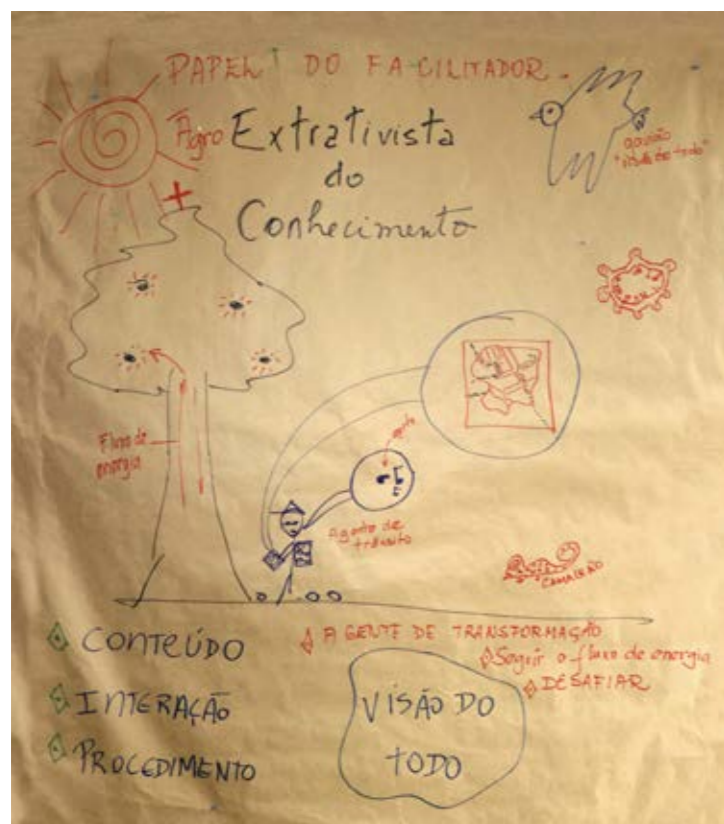 PAPEL DO FACILITADOR.
Agro Extrativista
do
Conhecimento
gavião
"visão do todo"
+
Fluxo de
energia
Agente de
trânsito
CAMALEÃO
CONTEÚDO
INTERAÇÃO
PROCEDIMENTO
AGENTE DE TRANSFORMAÇÃO
Seguir o fluxo de energia
DESAFIAR
VISÃO DO
TODO